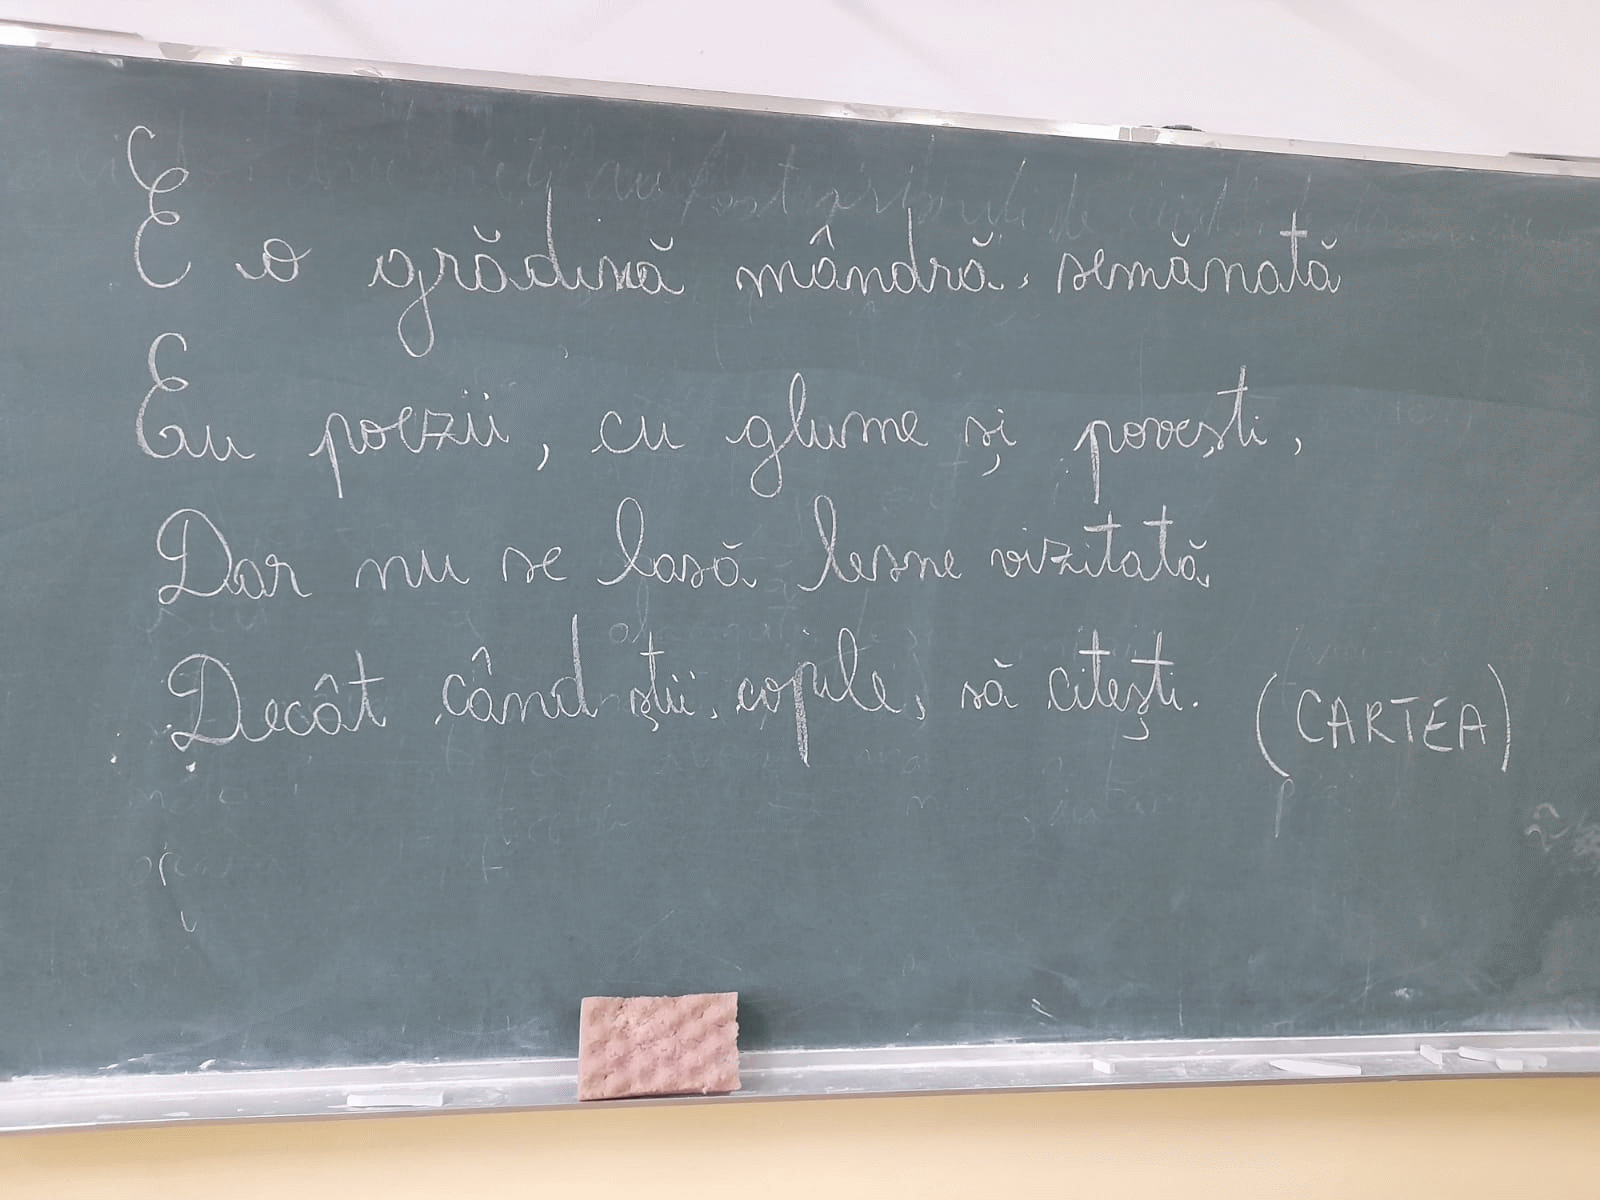 E
E o grădină mândră, semănată
Cu poezii, cu glume și povești,
Dar nu se lasă lesne vizitată
Decât când știi, copile, să citești. (CARTEA)